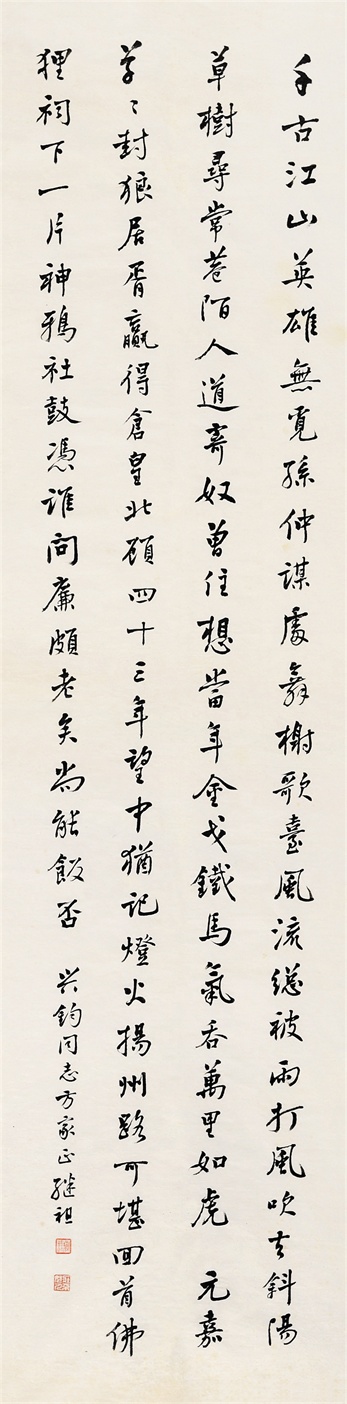 千古江山英雄無覓孫仲謀處舞榭歌臺風流總被雨打風吹去斜陽
草樹尋常巷陌人道寄奴曾住想當年金戈鐵馬氣吞萬里如虎 元嘉
草〻封狼居胥贏得倉皇北顧四十三年望中猶記燈火揚州路可堪囬首佛
狸祠下一片神鴉社鼓憑誰問廉頗老矣尚能飯否 兴鈞同志方家正 继祖